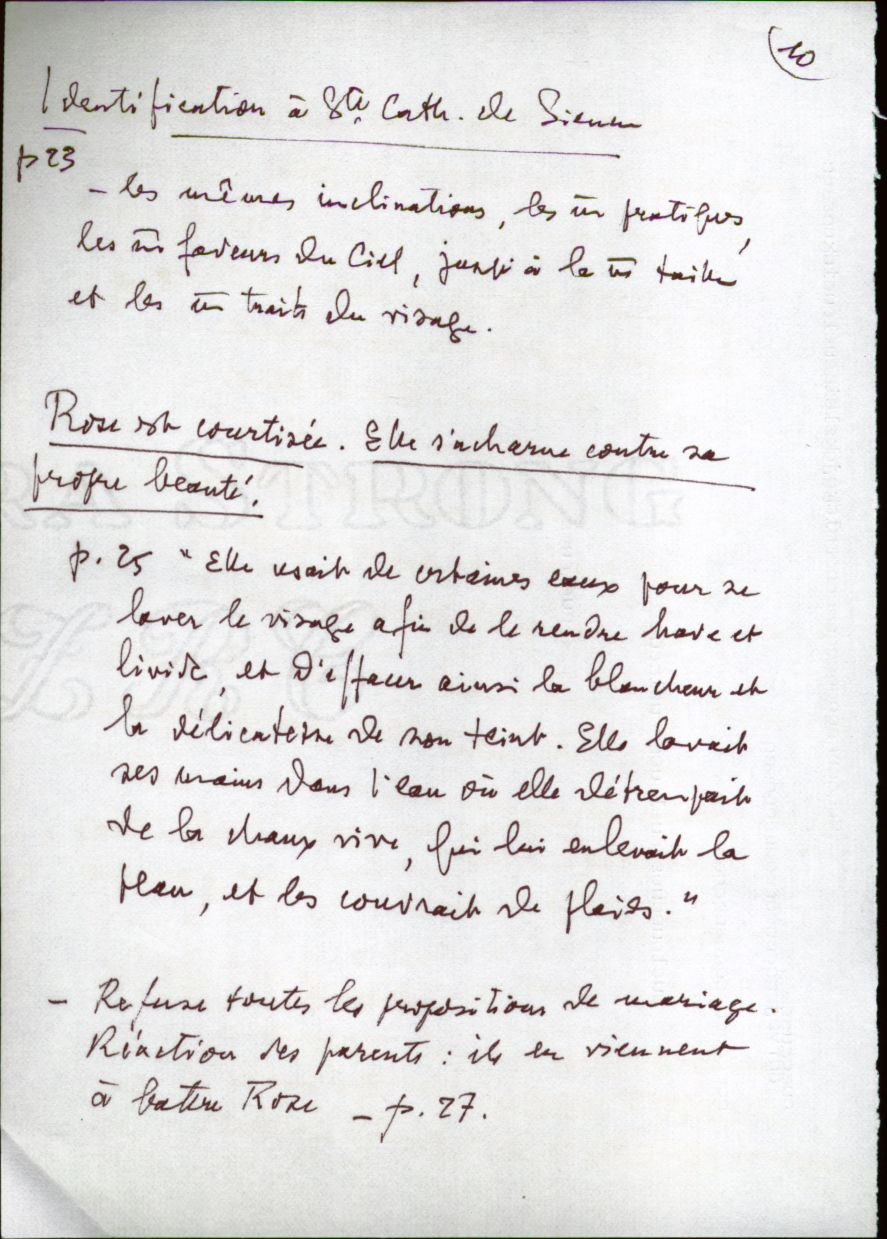 10
Identification à Ste Cath. de Sienne
p 23
- les mêmes inclinations, les m̄ pratiques,
les m̄ faveurs du Ciel, jusqu'à la m̄ taille
et les m̄ traits du visage.
Rose est courtisée. Elle s'acharne contre sa
propre beauté.
p. 25 "Elle usait de certaines eaux pour se
laver le visage afin de le rendre have et
livide, et d'effacer ainsi la blancheur et
la délicatesse de son teint. Elle lavait
ses mains dans l'eau où elle détrempait
de la chaux vive, qui lui enlevait la
peau, et les couvrait de plaies."
- Refuse toutes les propositions de mariage.
Réaction des parents : ils en viennent
à battre Rose - p. 27.
RA STRONG